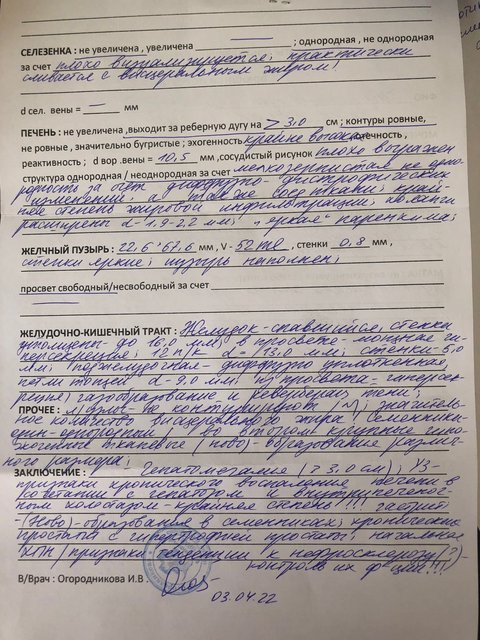 СЕЛЕЗЕНКА : не увеличена , увеличена ; однородная , не однородная
за счет плохо визуализируется; практически
сливается с висцеральным жиром!
d сел. вены = — мм
ПЕЧЕНЬ : не увеличена ,выходит за реберную дугу на > 3,0 см ; контуры ровные,
не ровные , значительно бугристые ; эхогенность крайне высокая
реактивность ; d вор .вены = 10,5 мм ,сосудистый рисунок плохо выражен
структура однородная / неоднородная за счет мелкозернистая, не одно-
родность за счет диффузно-дистрофических
изменений, а также соли ткани; край-
степень жировой инфильтрации;
расширены d - 1,9-2,2 мм; „яркая" паренхима;
ЖЕЛЧНЫЙ ПУЗЫРЬ : 22,6 * 67,6 мм , V - 52 , стенки 0,8 мм ,
стенки яркие; пузырь наполнен;
просвет свободный/несвободный за счет
ЖЕЛУДОЧНО-КИШЕЧНЫЙ ТРАКТ : Желудок - спавшийся, стенка
утолщены до 16,0 мм; в просвете - мощная ги-
персекреция; 12 п/к d = 13,0 мм; стенки - 5,0
мм; поджелудочная - диффузно уплотненная,
петли тощей d - 9,0 мм; из просвета - гиперсек-
реция, газообразование и реверберац. тени;
ПРОЧЕЕ : л/узлы - не контурируют ; значитель-
ное количество висцерального жира; Семенники -
один - однородный, во втором крупные гипо-
эхогенные тканевые (ново) - образования различ-
ного размера;
ЗАКЛЮЧЕНИЕ : Гепатомегалия (> 3,0 см); УЗ-
признаки хронического воспаления печени в
сочетании с гепатозом и внутрипеченоч-
ным холестазом - крайняя степень!!! гастрит
-(Ново)-образования в семенниках; хронический
простатит с гипертрофией простаты, начальная
ХПН / признаки тенденции к нефросклерозу (?) -
контроль их ф-ции!!!
В/Врач : Огородникова И.В
03.04.22